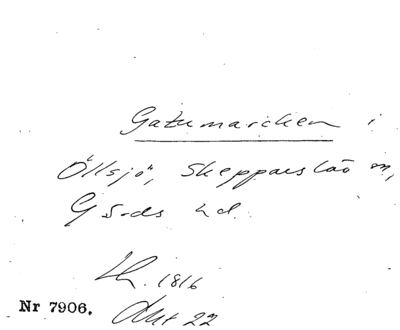 Gatumarcken i
Öllsjö, Skepparslöv,
G s-ds hd.
Lh. 1816
Nr 7906. Akt 22